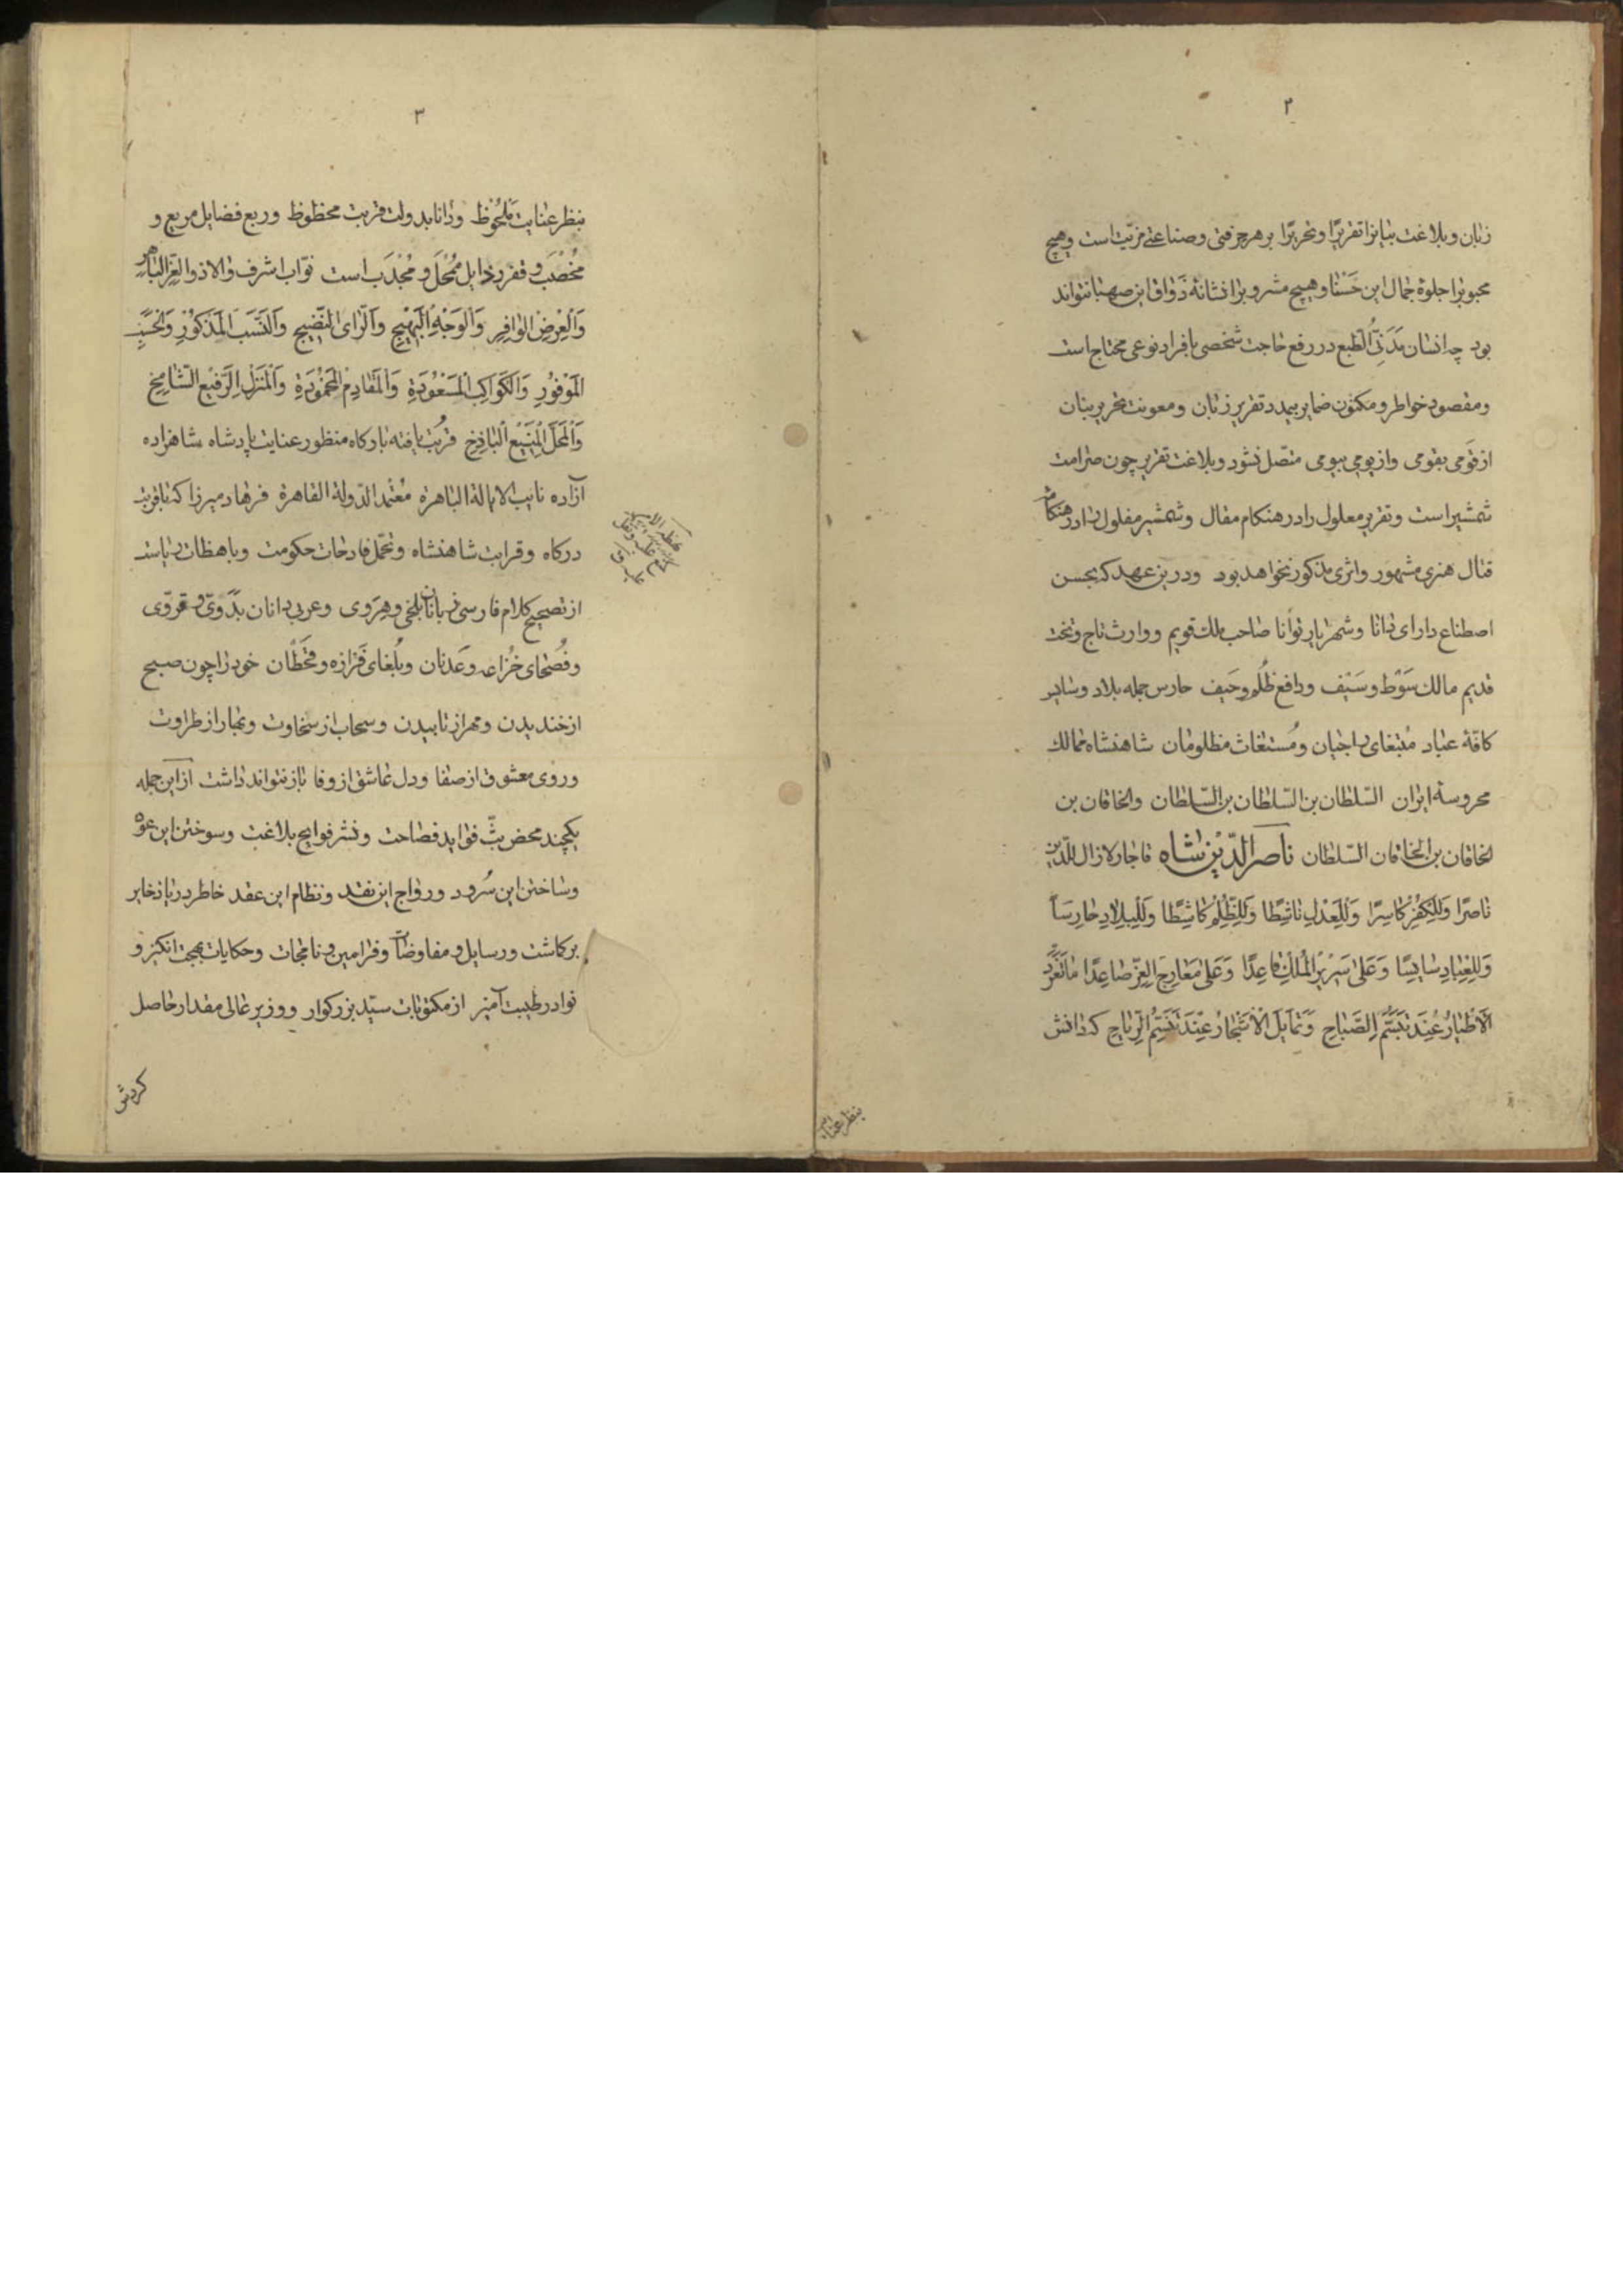 ۲
زبان و بلاغت بیانرا تقریرًا و تحریرًا بر هر حرفتی و صناعتی مزیّت است و هیچ
محبوبرا جلوهٔ جمال این حَسْنا و هیچ مشروبرا نشانهٔ ذَواق این صهبا نتواند
بود چه انسان مَدَنیُّ الطبع در رفع حاجت شخصی بافراد نوعی محتاج است
و مقصود خواطر و مکنون ضمایر بیمدد تقریر زبان و معونت تحریر بنان
از قومی بقومی و از یومی بیومی متصل نشود و بلاغت تقریر چون صرامت
شمشیر است و تقریر معلول را در هنکام مقال و شمشیر مفلول را در هنکام
قتال هنری مشهور و اثری مذکور نخواهد بود و درین عهد که بحسن
اصطناع دارای دانا و شهریار توانا صاحب ملک قویم و وارث تاج و تخت
قدیم مالک سَوْط و سَیْف و دافع ظُلم و حَیف حارس جمله بلاد و سایر
کافّهٔ عباد مُبتغای راجیان و مُستغاث مظلومان شاهنشاه ممالک
محروسهٔ ایران السّلطان بن السّلطان بن السّلطان والخاقان بن
الخاقان بن الخاقان السّلطان ناصر الدّین شاه قاجار لازال للدّین
ناصرًا وَلِلکُفْرِ کاسِرًا وَلِلعَدْلِ ناشِطًا وَلِلظُّلْمِ کاشِطًا وَلِلبِلادِ حارِسًا
وَلِلعِبادِ سایِسًا وَعَلی سَرِیرِ المُلکِ قاعِدًا وَعَلی مَعارِجِ العِزِّ صاعِدًا ماتَغَرَّدَ
الأطیارُ عِنْدَ تَبَسُّمِ الصَّباحِ وَتَمایَلَ الأشجارُ عِنْدَ تَنَسُّمِ الرِّیاحِ که دانش
بنظر عنایت
۳
بنظر عنایت مَلحُوظ و دانا بدولت قربت محظوظ و ربع فضایل مریع و
مُخْصَب و قفر رذایل مُمْحَل و مُجْدَب است نوّاب اشرف والا ذوالعِزّ الباهر
وَالعِرضِ الوافِرِ وَالوَجْهِ البَهِیجِ وَالرّایِ النَّضِیجِ وَالنَّسَبِ المَذکُورِ وَالحَسَبِ
المَوْفُورِ وَالکَواکِبِ المَسْعُودَةِ وَالمَقادِمِ المَحْمُودَةِ وَالمَنزِلِ الرَّفیعِ الشّامِخِ
وَالمَحَلِّ المَنِیعِ الباذِخِ قُربت یافته بارکاه منظور عنایت پادشاه شاهزاده
آزاده نایب الایالة الباهرة مُعْتَمد الدّولة القاهرة فرهاد میرزا که با قربت
درکاه و قرابت شاهنشاه و تحمّل فادحات حکومت و باهظات ریاست
از تصحیح کلام فارسی زبانان بلخی و هِرَوی و عربی دانان بَدَوی و قروی
و فُصَحای خُزاعه و عَدنان و بُلغای فَزازه و قَحْطان خود را چون صبح
از خندیدن و مهر از تابیدن و سحاب از سخاوت و بهار از طراوت
و روی معشوق از صفا و دل عاشق از وفا باز نتواند داشت از این جمله
یکچند محض بثّ فواید فصاحت و نشر فوایح بلاغت و سوختن این عود
و ساختن این سُرود و رواج این نقد و نظام این عقد خاطر دریا ذخایر
برکماشت و رسایل و مفاوضات و فرامین و نامجات و حکایات بهجت انکیز و
نوادر طیبت آمیز از مکتوبات سیّد بزرکوار و وزیر عالی مقدار حاصل
کردش